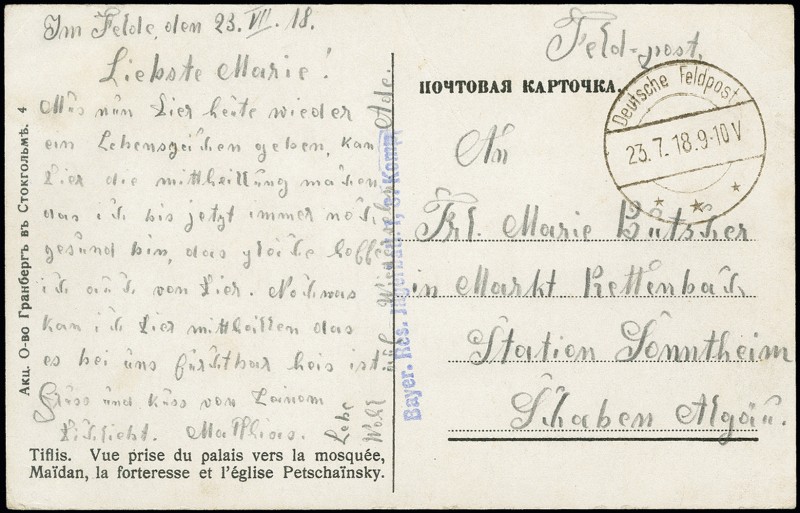 Im Felde, den 23. VII. 18.
Liebste Marie!
Mus nun Dier heute wieder
ein Lebenszeichen geben, kan
Dier die mittheillung machen
das ich bis jetzt immer noch
gesund bin, das gleiche hoffe
ich auch von Dier. Noch was
kan ich Dier mittheillen das
es bei uns furchtbar heis ist
Gruss und Kuss von Deinem
Mathias.
Lebe
Wohl
auf Wiedersehen Ade.
Tiflis. Vue prise du palais vers la mosquée,
Maïdan, la forteresse et l'église Petschaïnsky.
Акц. О-во Гранбергъ въ Стокгольмѣ. 4
Bayer. Res. Jägerbatl. 1, 3. Komp.
Feld-post.
ПОЧТОВАЯ КАРТОЧКА.
Deutsche Feldpost
23.7.18.9-10V
An
Frl. Marie Butscher
in Markt Rettenbach
Station Sonntheim
Schaben Algäu.